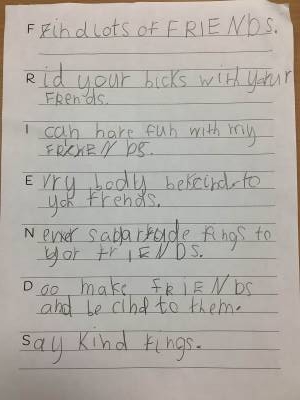 F Find lots of FRIENDS.
R id your bicks with your
Frends.
I can have fun with my
FRIENDS.
E vry body bekind to
yor frends.
N ever say rude fings to
yor frIENDS.
D oo make FRIENDS
and be cind to them.
S ay Kind fings.